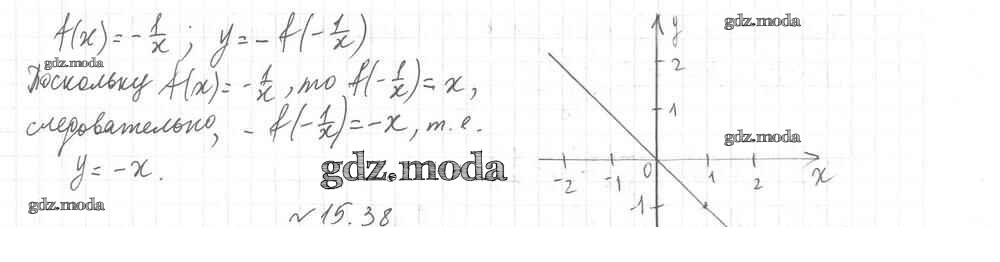 f(x) = -1/x ; y = -f(-1/x)
gdz.moda
Поскольку f(x) = -1/x, то f(-1/x) = x,
следовательно, -f(-1/x) = -x, т.е.
y = -x.
gdz.moda
gdz.moda
№15.38
gdz.moda
y
2
1
gdz.moda
-2 -1 0 1 2 x
-1